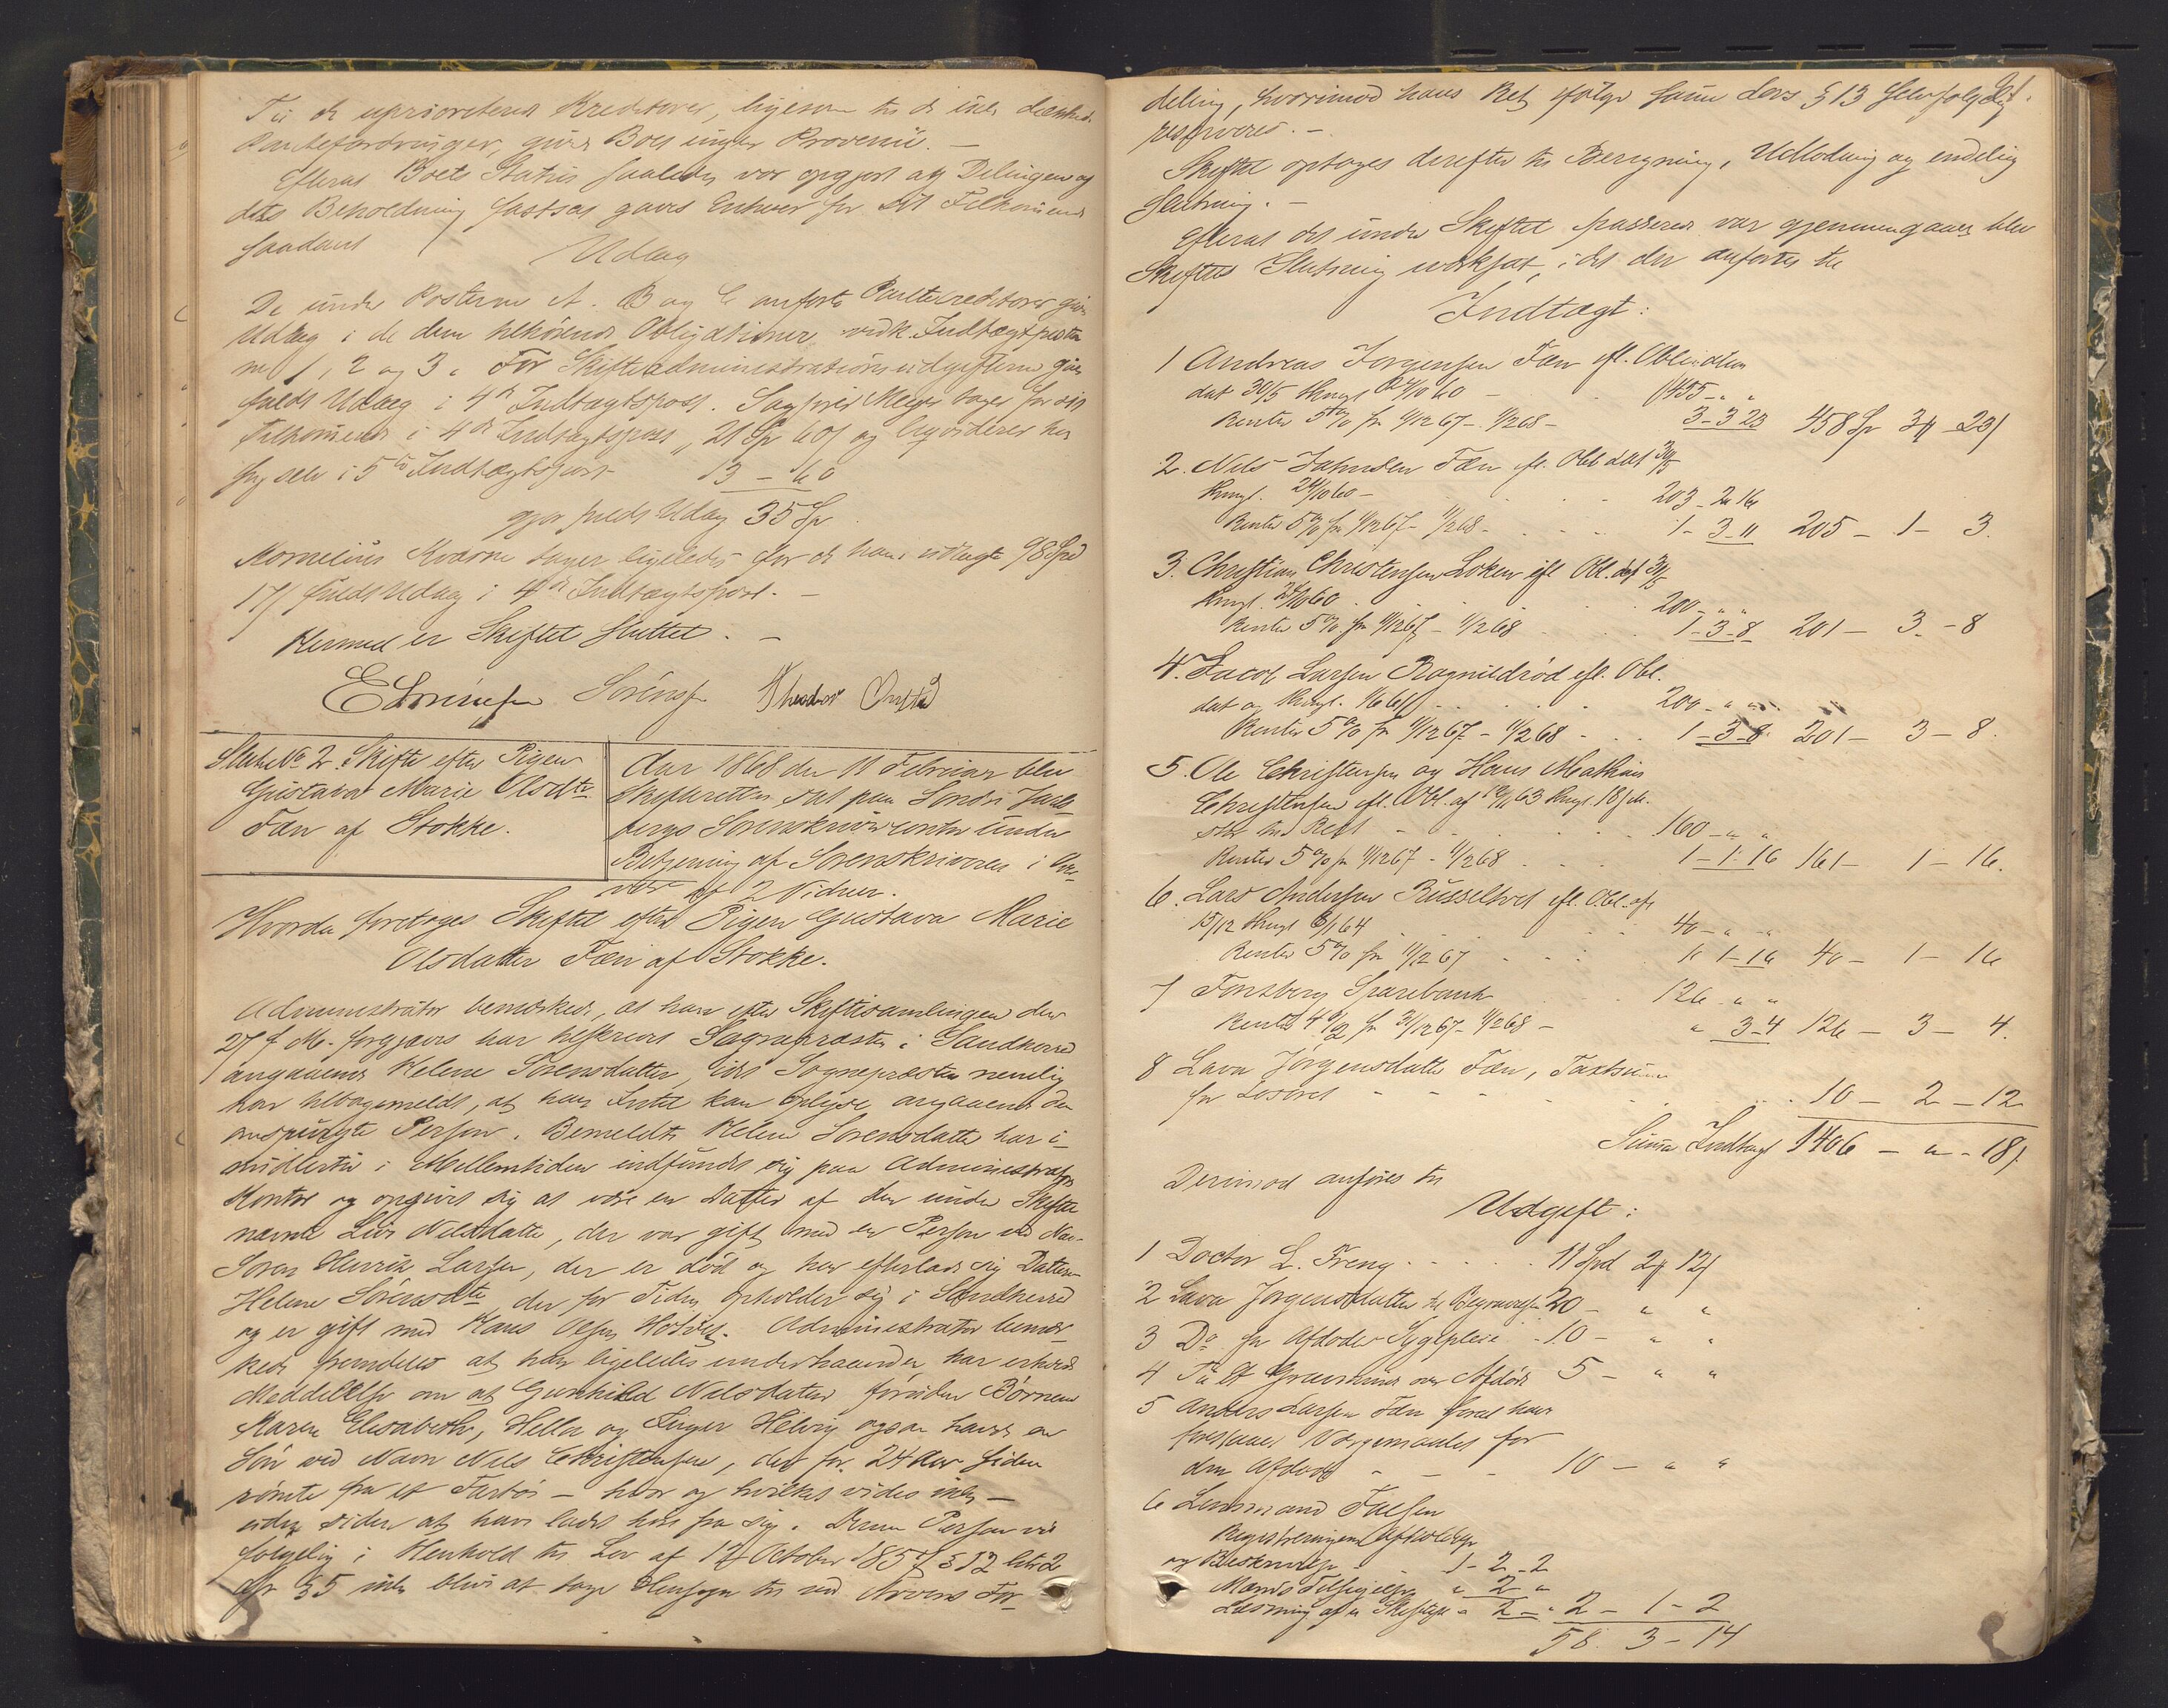 Til de uprioriterede Kreditorer, ligesom til de ikke dækkede
Pantefordringer, giver Boet ingen Provenü. —
Efterat Boets Status saaledes var opgjort og Delingen af
dets Beholdning fastsat gaves Enhver for sit Tilkommende
saadant
Udlæg
De under Posterne A. B og C anførte Pantecreditorer gives
Udlæg i de dem tilhørende Obligationer vedk. Indtægtsposter
ne 1, 2 og 3. For Skifteadministrationsudgifterne gives
fuldt Udlæg i 4de Indtægtspost. Sagfører Meyer tager for sit
Tilkommende i 4de Indtægtspost, 21 Sp 60 s og liqviderer hos
sig selv i 5te Indtægtspost 13 – 60
gjør fuldt Udlæg 35 Sp
Kornelius Kværne tager ligeledes for de ham udlagte 98 Spd
17 s fuldt Udlæg i 4de Indtægtspost. —
Hermed er Skiftet sluttet. —
ESørensen Sørensen Theodor
Slutn No 2. Skifte efter Pigen
Gustava Marie Olsdtr
Fæn af Stokke.
Aar 1868 den 11 Februar blev
Skifteretten sat paa Søndre Jarls
bergs Sorenskrivercontor under
Betjening af Sorenskriveren i Over
vær af 2 Vidner.
Hvorda foretoges Skiftet efter Pigen Gustava Marie
Olsdatter Fæn af Stokke.
Administrator bemærkede, at han efter Skiftesamlingen den
27 f. M. forgjæves har tilskrevet Sognepræsten i Sandherred
angaaende Helene Sørensdatter, idet Sognepræsten nemlig
har tilbagemeldt, at han Intet kan oplyse angaaende den
omspurgte Person. Bemeldte Helene Sørensdatter har i-
midlertid i Mellemtiden indfundet sig paa Administrators
Kontor og opgivet sig at være en Datter af den under Skiftet
nævnte Live Nilsdatter, der var gift med en Person ved Navn
Søren Henrik Larsen, der er død og har efterladt sig Datteren
Helene Sörensdtr, der for Tiden opholder sig i Sandherred
og er gift med Hans Olsen. Administrator bemær-
kede fremdeles at han ligeledes underhaanden har erholdt
Meddelelse om at Gunhild Nilsdatter foruden Børnene
Maren Elisabeth, Hella og Inger Helvig ogsaa havde en
Søn ved Navn Nils Christensen, der for 24 Aar siden
rømte fra et Fartøi — hvor og hvilket vides ikke —
uden siden at have ladet høre fra sig. Denne Person vil
følgelig i Henhold til Lov af 12 October 1857 § 12 litr 2
cfr § 5 ikke blive at tage Hensyn til ved Arvens For-
deling, hvorimod hans Ret ifølge samme Lovs § 13 selvfølgelig
reserveres. —
Skiftet optoges derefter til Beregning, Udlodning og endelig
Slutning. —
Efterat det under Skiftet passerede var gjennemgaaet blev
Skiftets Slutning iværksat, idet der anførtes til
Indtægt:
1 Andreas Jørgensen Fæn efl. Obligation
dat 30/5 thingl 24/10 60 – 455 „ „
Renter 5 % fr 11/12 67 – 11/2 68 – 3–3 23 458 Sp 3 # 23 s
2. Nils Johnsen Fæn efl. Obl dat 30/5
thingl. 24/10 60 – 203 – 2 16
Renter 5 % fr 11/12 67 – 11/2 68 – 1–3–11 205 – 1 – 3.
3. Christian Christensen Løken efl Obl. dat 30/5
thingl. 24/10 60 200 – „ „
Renter 5 % fr 11/12 67 – 11/2 68 1–3–8 201 – 3 – 8
4. Jacob Larsen Ragnildrød efl. Obl.
dat og thingl. 1/6 61 200 – „ „
Renter 5 % fr 11/12 67 – 11/2 68 – 1–3–8 201 – 3 – 8.
5. Ole Christensen og Hans Mathias
Christensen efl. Obl. af 12/11 63 thingl. 18 s. M.
stor til Rest 160 – „ „
Renter 5 % fr 11/12 67 – 11/2 68 1–1–16 161 – 1 – 16.
6. Lars Andersen Russeltvet efl. Obl. af
15/12 thingl 8/1 64 40 – „ „
Renter 5 % fr 11/12 67 „ 1–16 40 – 1 – 16
7 Tønsberg Sparebank 126 „ „
Renter 4 1/2 fr 31/12 67 – 11/2 68 – „ 3–4 126 – 3 – 4.
8 Lava Jørgensdatter Fæn, Taxtsum
for Løsøret 10 – 2 – 12
Summa Indtægt 1406 – „ – 18 s.
Derimod anføres til
Udgift:
1 Doctor L. Freng 11 Spd 2 # 12 s
2 Lava Jørgensdatter til Begravelsen 20 – „ „
3 Do for Afdødes Sygepleie 10 – „ „
4 Til et Gravminde over Afdøde 5 – „ „
5 Anders Larsen Fæn fordi han
forestaaet Værgemaalet for
den Afdøde 10 – „ „
6 Lensmand Falsen
Registreringens Afholdelse
og Beskrivelse 1–2–2
Mænds Tilsigelse „ 2 „
Læsning af et Skiftebr „ 2 „ 2 – 1 – 2
58. 3 – 14